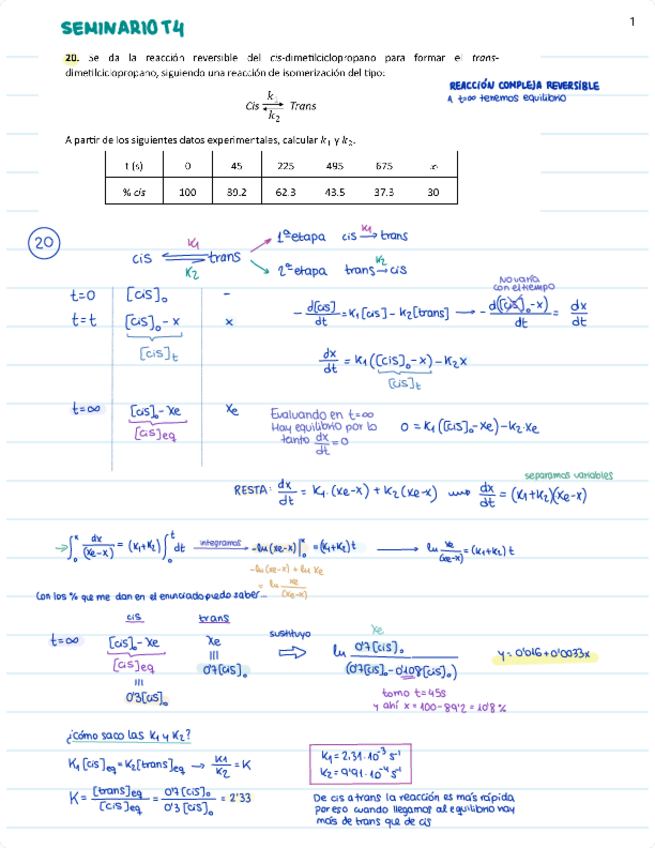 SEMINARIO T4
1
20. Se da la reacción reversible del cis-dimetilciclopropano para formar el trans-
dimetilciclopropano, siguiendo una reacción de isomerización del tipo:
REACCIÓN COMPLEJA REVERSIBLE
A t=∞ tenemos equilibrio
Cis ⇄ Trans
k
k₂
A partir de los siguientes datos experimentales, calcular k₁ y k₂.
t (s) 0 45 225 495 675 ∞
% cis 100 89.2 62.3 43.5 37.3 30
20
cis ⇄ trans
K₁
K₂
1ª etapa cis →K₁ trans
2ª etapa trans →K₂ cis
t=0 [cis]₀ -
t=t [cis]₀-x x
[cis]t
No varía
con el tiempo
-d[cis]/dt = K₁[cis] - K₂[trans] → -d([cis]₀-x)/dt = dx/dt
dx/dt = K₁([cis]₀-x) - K₂x
[cis]t
t=∞ [cis]₀-xe xe
[cis]eq
Evaluando en t=∞
Hay equilibrio por lo
tanto dx/dt = 0
0 = K₁([cis]₀-xe) - K₂·xe
separamos variables
RESTA: dx/dt = K₁·(xe-x) + K₂(xe-x) dx/dt = (K₁+K₂)(xe-x)
→ ∫₀ˣ dx/(xe-x) = (K₁+K₂) ∫₀ᵗ dt integramos → -ln(xe-x)|₀ˣ = (K₁+K₂)t → ln xe/(xe-x) = (K₁+K₂)t
-ln(xe-x) + ln xe
= ln xe/(xe-x)
Con los % que me dan en el enunciado puedo saber...
cis trans
t=∞ [cis]₀-xe xe
[cis]eq 0'7[cis]₀
0'3[cis]₀
sustituyo ⇒
xe
ln 0'7[cis]₀/(0'7[cis]₀-0'108[cis]₀)
y=0'016+0'0033x
tomo t=45s
y ahí x=100-89'2=10'8%
¿Cómo saco las K₁ y K₂?
K₁[cis]eq = K₂[trans]eq → K₁/K₂ = K
K = [trans]eq/[cis]eq = 0'7[cis]₀/0'3[cis]₀ = 2'33
K₁ = 2'31·10⁻³ s⁻¹
K₂ = 9'91·10⁻⁴ s⁻¹
De cis a trans la reacción es más rápida
por eso cuando llegamos al equilibrio hay
más de trans que de cis